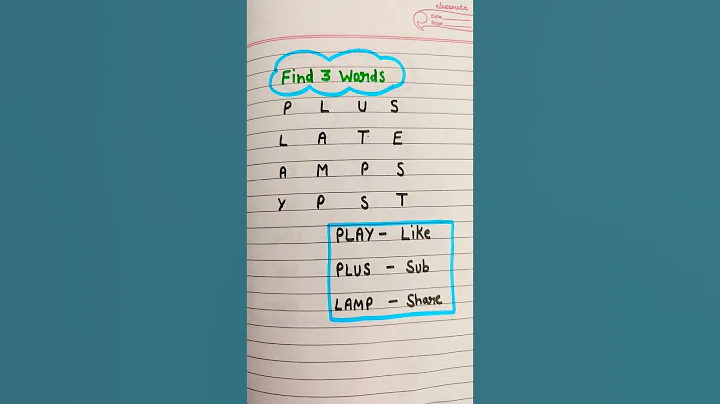 classmate
Date
Page
Find 3 Words
P L U S
L A T E
A M P S
Y P S T
PLAY - Like
PLUS - Sub
LAMP - Share